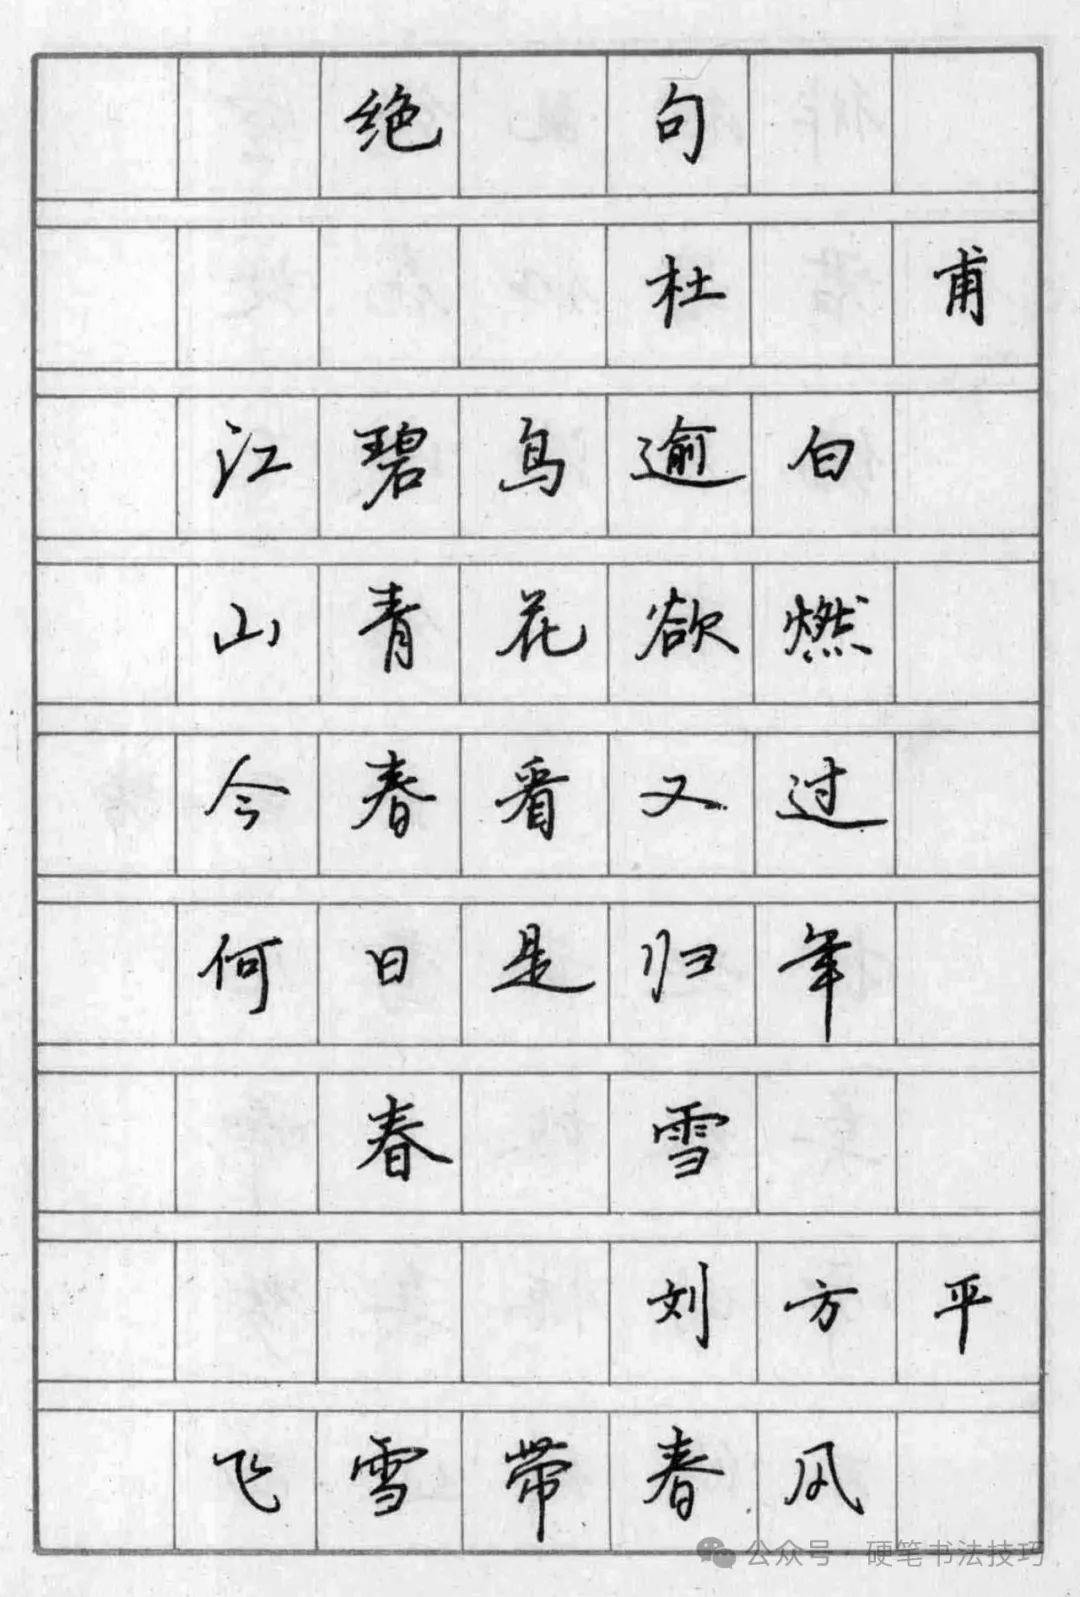 绝句
杜甫
江碧鸟逾白
山青花欲燃
今春看又过
何日是归年
春雪
刘方平
飞雪带春风
公众号·硬笔书法技巧